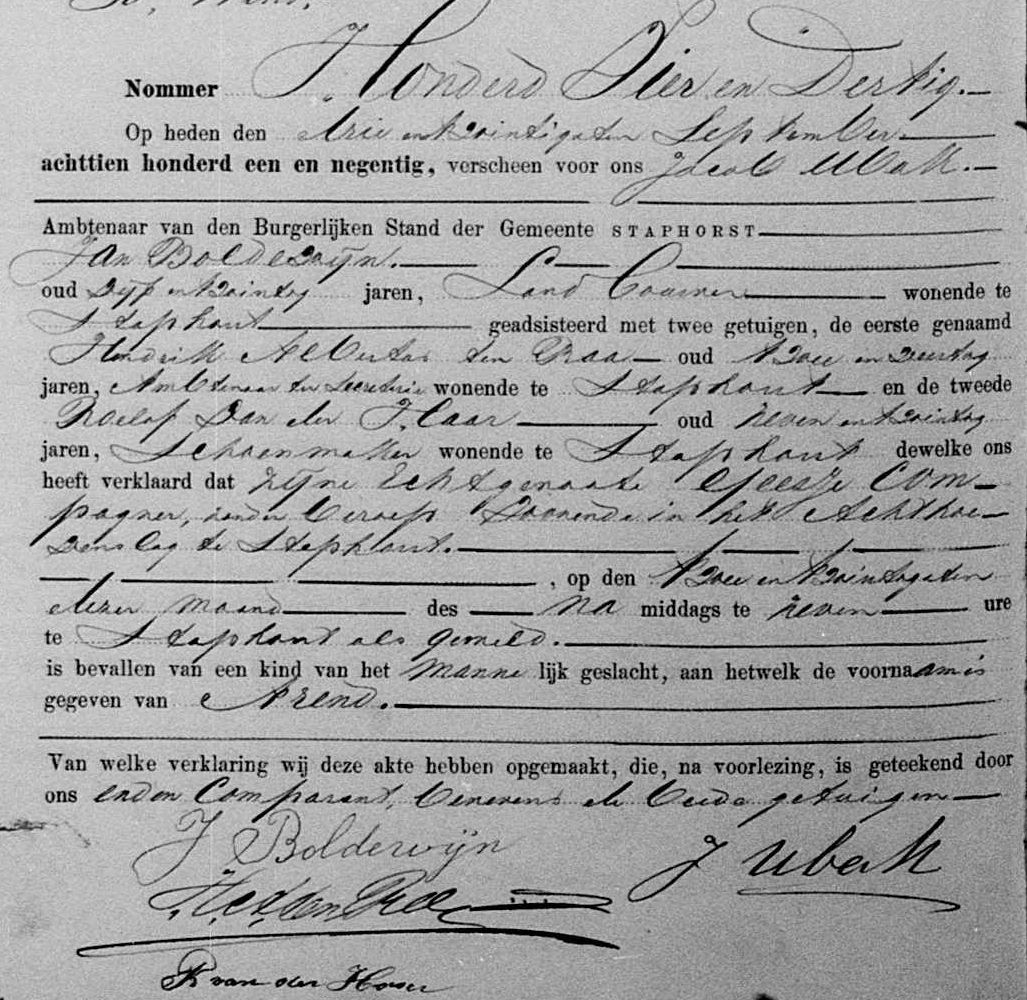 Nommer Honderd Vier en Dertig.
Op heden den drie en twintigsten September
achttien honderd een en negentig, verscheen voor ons Jacob Ubak.
Ambtenaar van den Burgerlijken Stand der Gemeente STAPHORST
Jan Boldewijn.
oud vijf en twintig jaren, Land bouwer wonende te
Staphorst geadsisteerd met twee getuigen, de eerste genaamd
Hendrik Albertus ten oud twee en veertig
jaren, Ambtenaar ter Secretarie wonende te Staphorst en de tweede
Roelof van der Haar oud zeven en twintig
jaren, Schoenmaker wonende te Staphorst dewelke ons
heeft verklaard dat zijne Echtgenoote Geesje Com-
pagner, zonder beroep wonende in het Achthoe-
venslag te Staphorst.
, op den twee en twintigsten
dezer maand des na middags te zeven ure
te Staphorst als gemeld.
is bevallen van een kind van het manne lijk geslacht, aan hetwelk de voornaam is
gegeven van Arend.
Van welke verklaring wij deze akte hebben opgemaakt, die, na voorlezing, is geteekend door
ons en den Comparant, benevens de beide getuigen
J Boldewijn J Ubak
R van der Haar